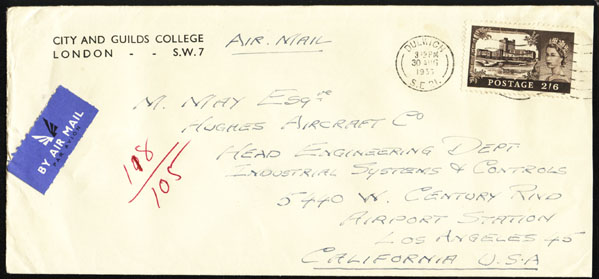 CITY AND GUILDS COLLEGE
LONDON - - S.W.7
AIR MAIL
DULWICH
30 AUG
S.E.21.
POSTAGE 2/6
BY AIR MAIL
PAR AVION
M. MAY ESQre
HUGHES AIRCRAFT Co
HEAD ENGINEERING DEPT
INDUSTRIAL SYSTEMS & CONTROLS
5440 W. CENTURY
AIRPORT STATION
LOS ANGELES 45
CALIFORNIA U.S.A
105